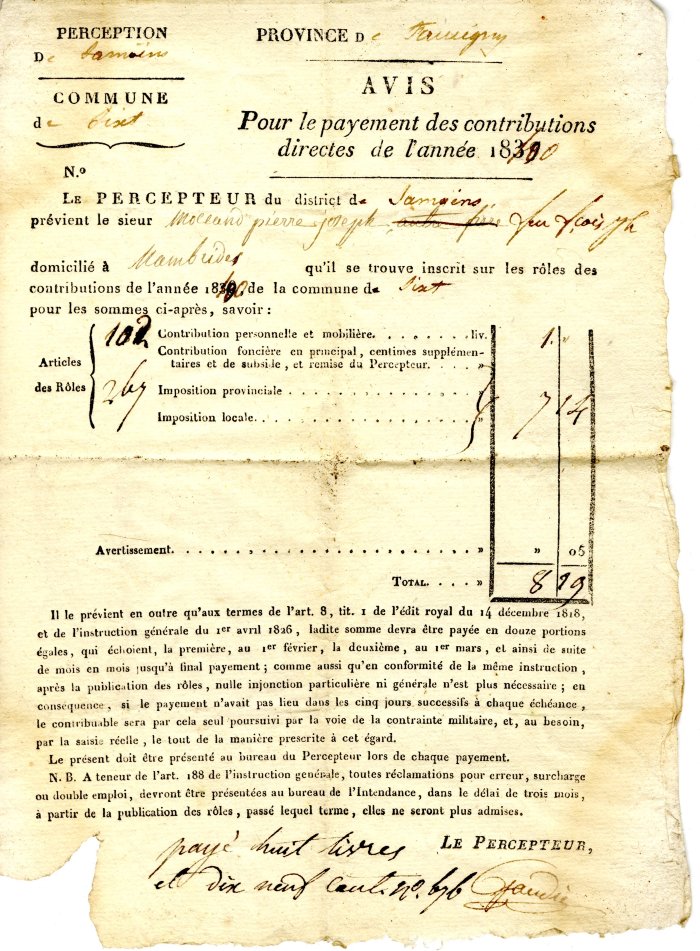 PERCEPTION
De Samoëns
COMMUNE
de Sixt
N.º
PROVINCE De Faucigny
AVIS
Pour le payement des contributions
directes de l'année 1840
LE PERCEPTEUR du district de Samoëns
prévient le sieur Molland pierre joseph feu
domicilié à qu'il se trouve inscrit sur les rôles des
contributions de l'année 1840 de la commune de Sixt
pour les sommes ci-après, savoir :
Articles
des Rôles
102 Contribution personnelle et mobilière. . . . . . . . liv. 1. "
Contribution foncière en principal, centimes supplémen-
taires et de subside, et remise du Percepteur. . . . »
267 Imposition provinciale . . . . . . . . . . . . . . » 7 14
Imposition locale. . . . . . . . . . . . . . . . . »
Avertissement. . . . . . . . . . . . . . . . . . . . . . . » » 05
TOTAL. . . . » 8 19
Il le prévient en outre qu'aux termes de l'art. 8, tit. 1 de l'édit royal du 14 décembre 1818,
et de l'instruction générale du 1er avril 1826, ladite somme devra être payée en douze portions
égales, qui échoient, la première, au 1er février, la deuxième, au 1er mars, et ainsi de suite
de mois en mois jusqu'à final payement; comme aussi qu'en conformité de la même instruction,
après la publication des rôles, nulle injonction particulière ni générale n'est plus nécessaire; en
conséquence, si le payement n'avait pas lieu dans les cinq jours successifs à chaque échéance,
le contribuable sera par cela seul poursuivi par la voie de la contrainte militaire, et, au besoin,
par la saisie réelle, le tout de la manière prescrite à cet égard.
Le présent doit être présenté au bureau du Percepteur lors de chaque payement.
N. B. A teneur de l'art. 188 de l'instruction générale, toutes réclamations pour erreur, surcharge
ou double emploi, devront être présentées au bureau de l'Intendance, dans le délai de trois mois,
à partir de la publication des rôles, passé lequel terme, elles ne seront plus admises.
LE PERCEPTEUR,
payé huit livres
et dix neuf cent. nº 676